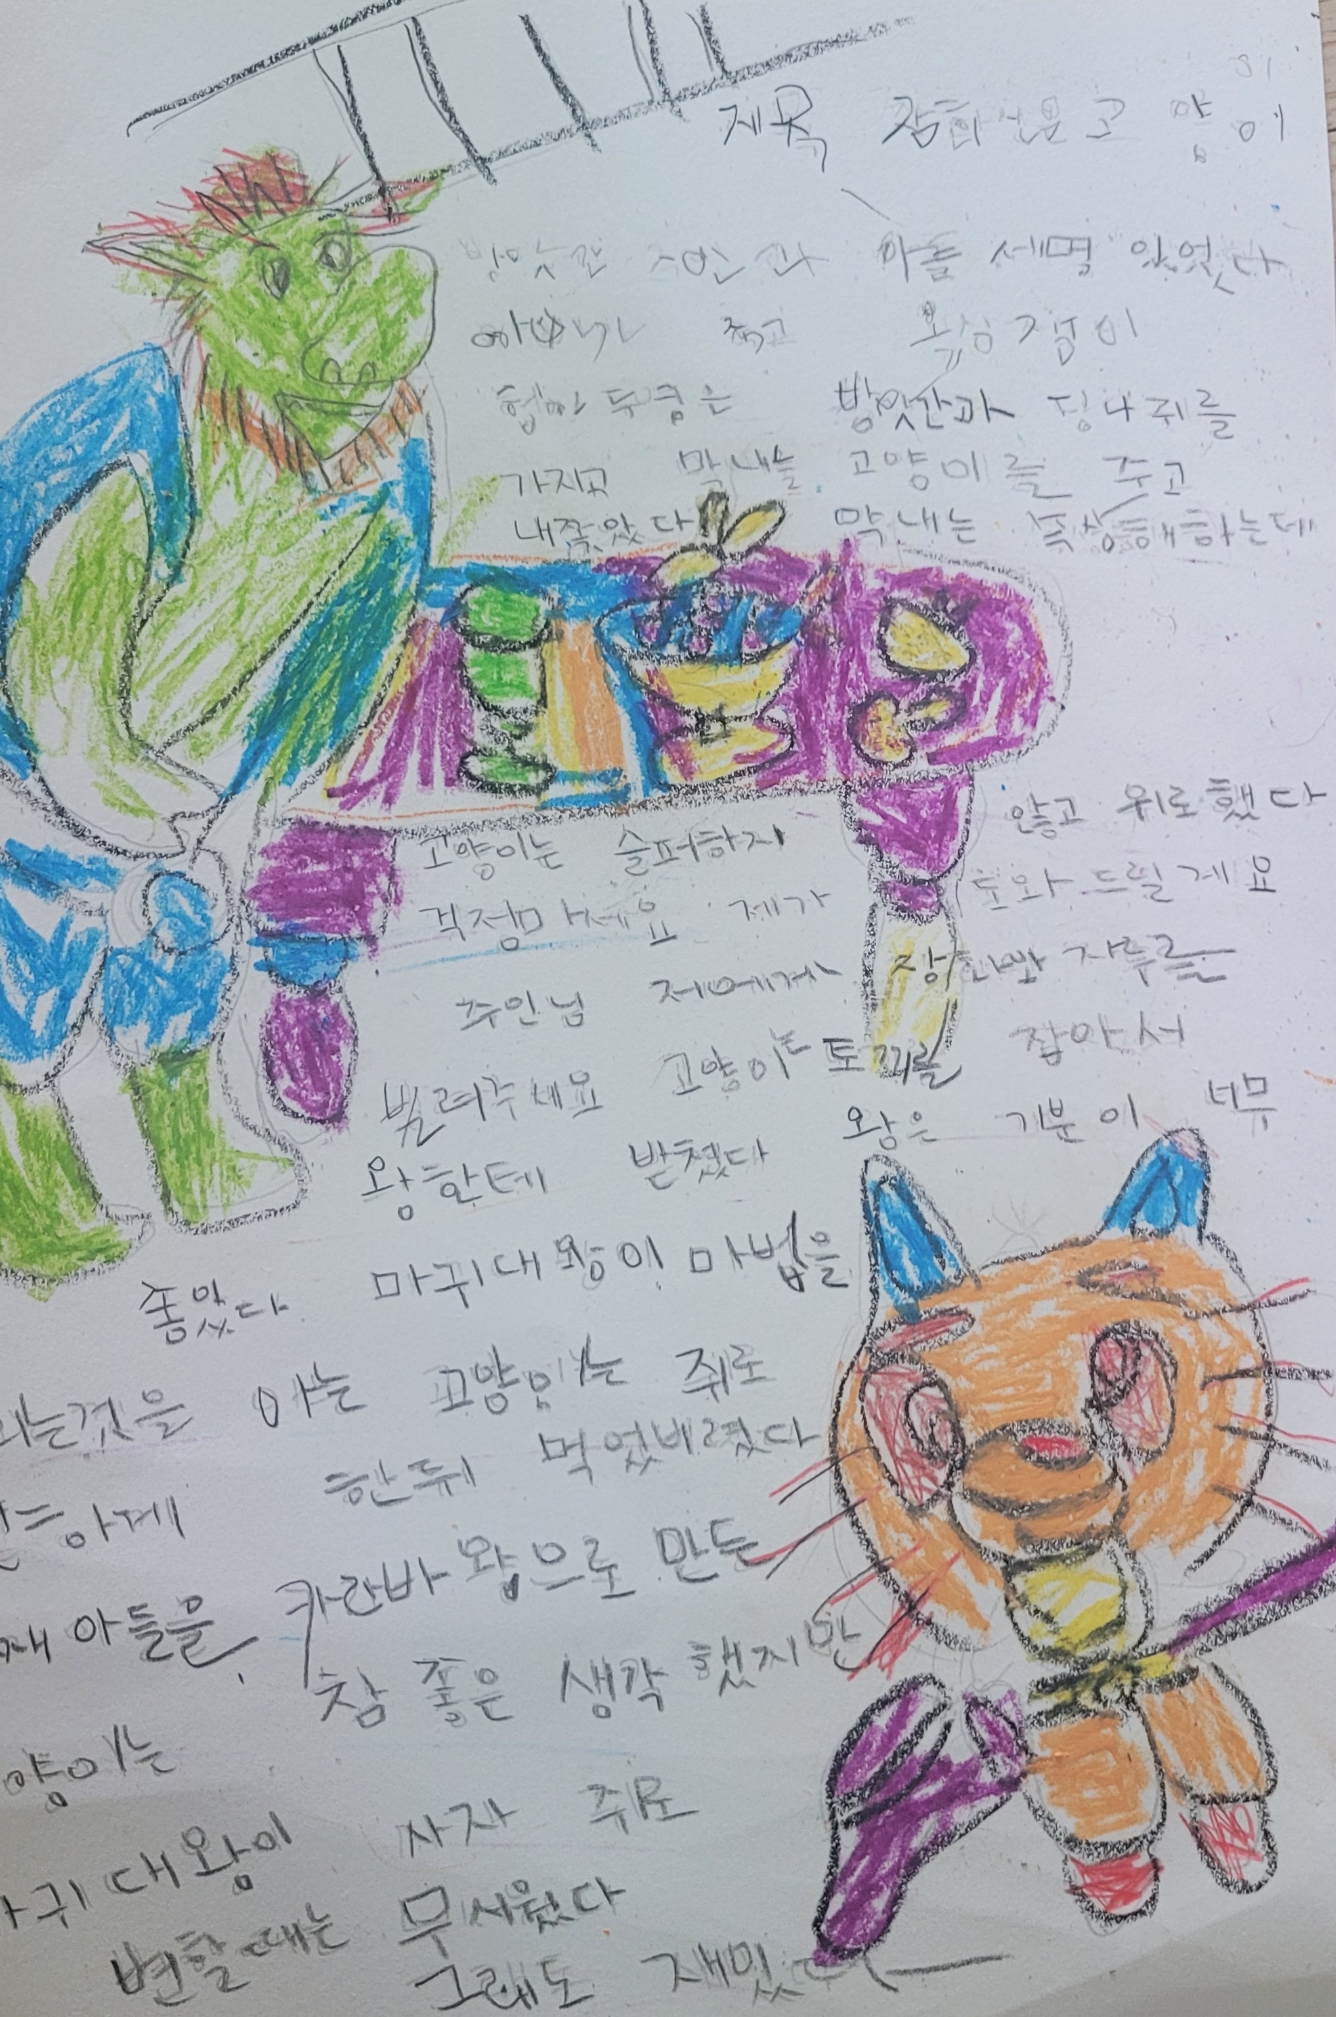 제목 장화신은고양이
방앗간 주인과 아들 세명 있었다
아빠가 죽고 욕심쟁이
형아 두명은 방앗간과 당나귀를
가지고 막내는 고양이를 주고
내쫓았다 막내는 속상해하는데
고양이는 슬퍼하지 않고 위로했다
걱정마세요 제가 도와드릴게요
주인님 저에게 장화와 자루를
빌려주세요 고양이는 토끼를 잡아서
왕한테 받쳤다 왕은 기분이 너무
좋았다 마귀대왕이 마법을
아는 고양이는 쥐로
한뒤 먹었버렸다
아들을 카란바 왕으로 만든
양이는 참 좋은 생각했지만
귀대왕이 사자 쥐로
변할때는 무서웠다
그래도 재밌다